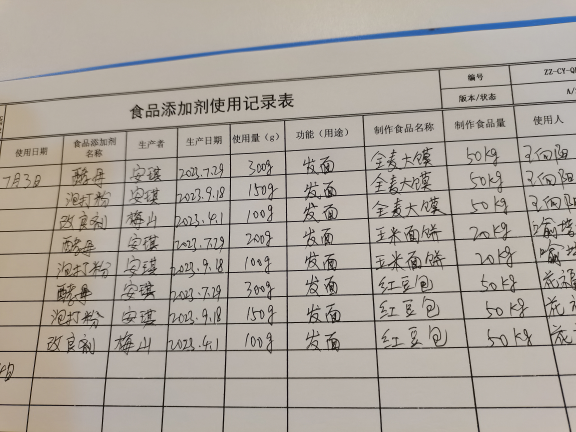 食品添加剂使用记录表
编号 ZZ-CY-QR
版本/状态 A/
使用日期 食品添加剂名称 生产者 生产日期 使用量(g) 功能(用途) 制作食品名称 制作食品量 使用人
7月3日 酵母 安琪 2023.7.29 300g 发面 全麦大馍 50kg 王向阳
泡打粉 安琪 2023.9.18 150g 发面 全麦大馍 50kg 王向阳
改良剂 梅山 2023.4.1 100g 发面 全麦大馍 50kg 王向阳
酵母 安琪 2023.7.29 200g 发面 玉米面饼 20kg
泡打粉 安琪 2023.9.18 100g 发面 玉米面饼 20kg
酵母 安琪 2023.7.29 300g 发面 红豆包 50kg
泡打粉 安琪 2023.9.18 150g 发面 红豆包 50kg
改良剂 梅山 2023.4.1 100g 发面 红豆包 50kg